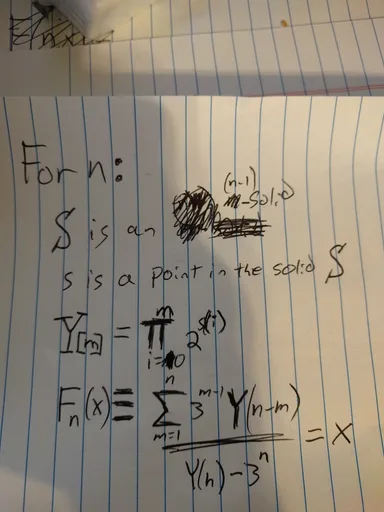 For n:
S is an (n-1)-solid
s is a point in the solid S
Y[m] = ∏_{i=0}^{m} 2^{s(i)}
F_n(x) ≡ \frac{∑_{m=1}^{n} 3^{m-1} Y(n-m)}{Y(n)-3^n} = x